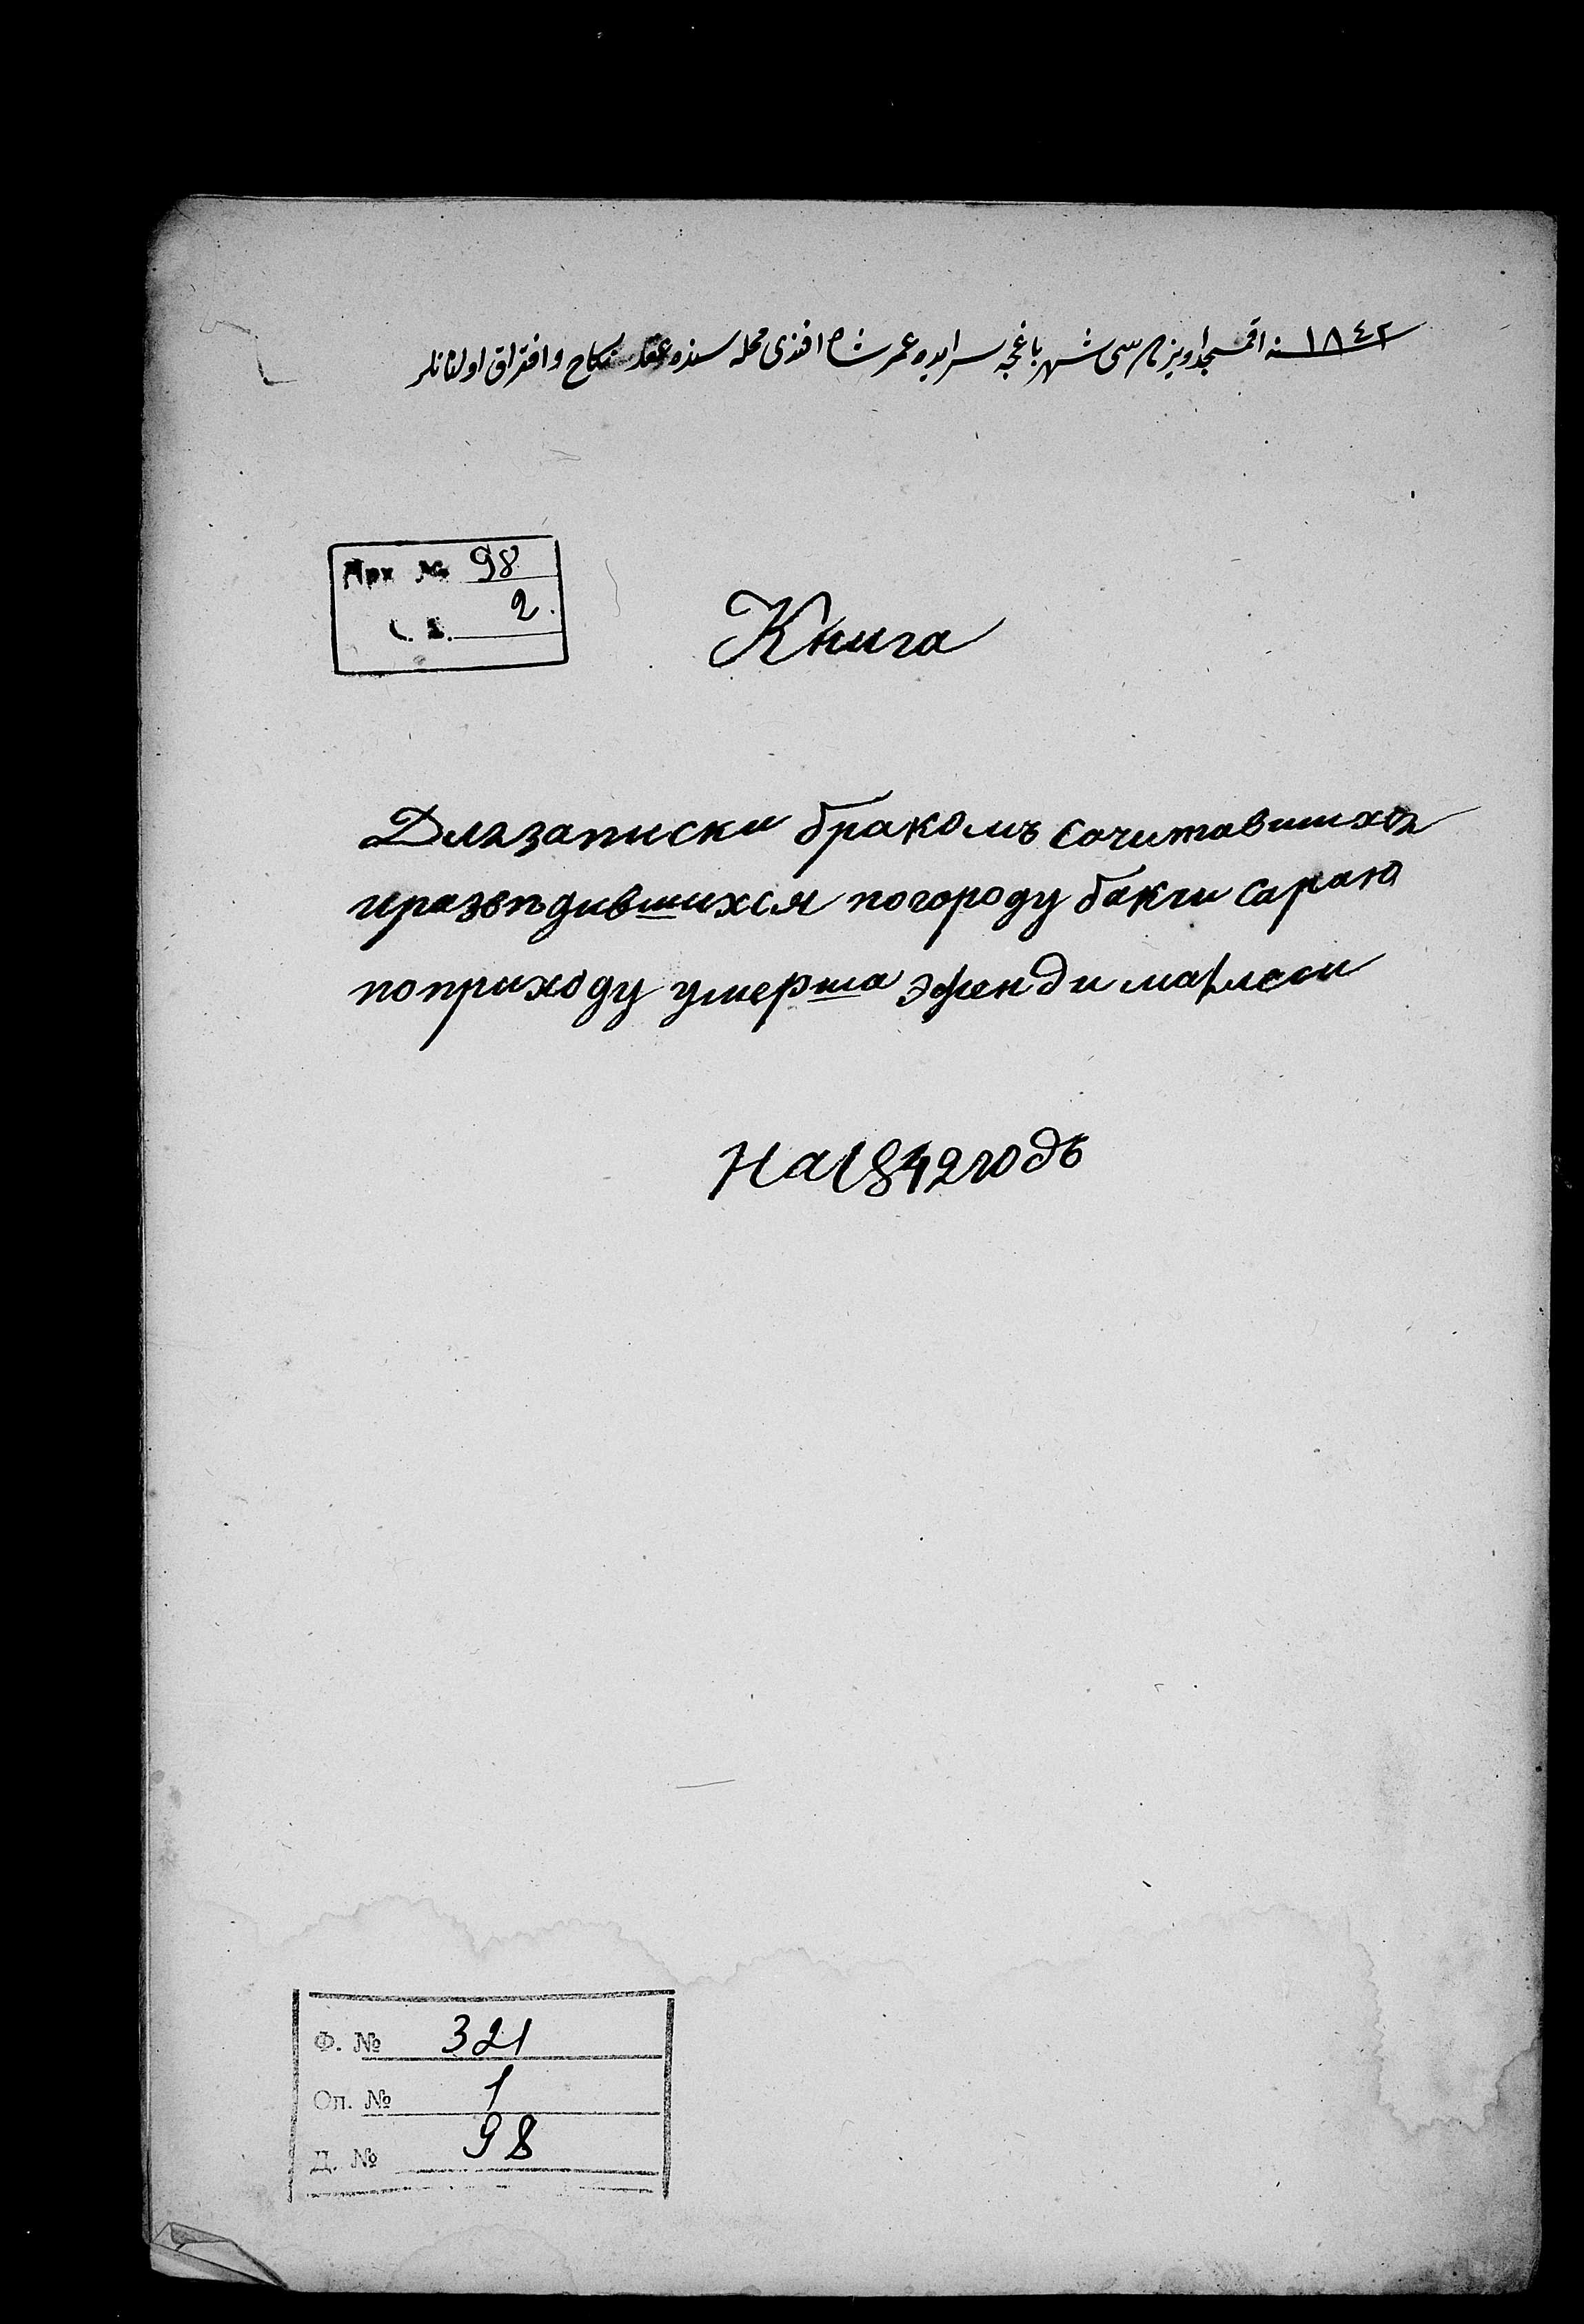 ١٨٤٢ سنه اقمسجد اويزنام سى شهر باغچه سرايده عمر شاه افندى محله سنده عقد نكاح و افتراق اولنانلر
Арх № 98
2.
Книга
Для записки бракомъ сочитавшихся
и развъдившихся по городу бакчи сараю
по приходу умерша эфенди маhлеси
На 1842 годъ
Ф. № 321
Оп. № 1
Д. № 98